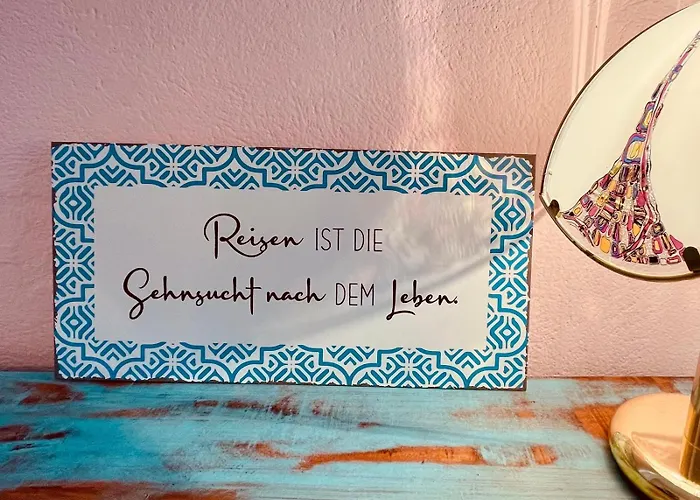 Reisen IST DIE
Sehnsucht nach DEM Leben.